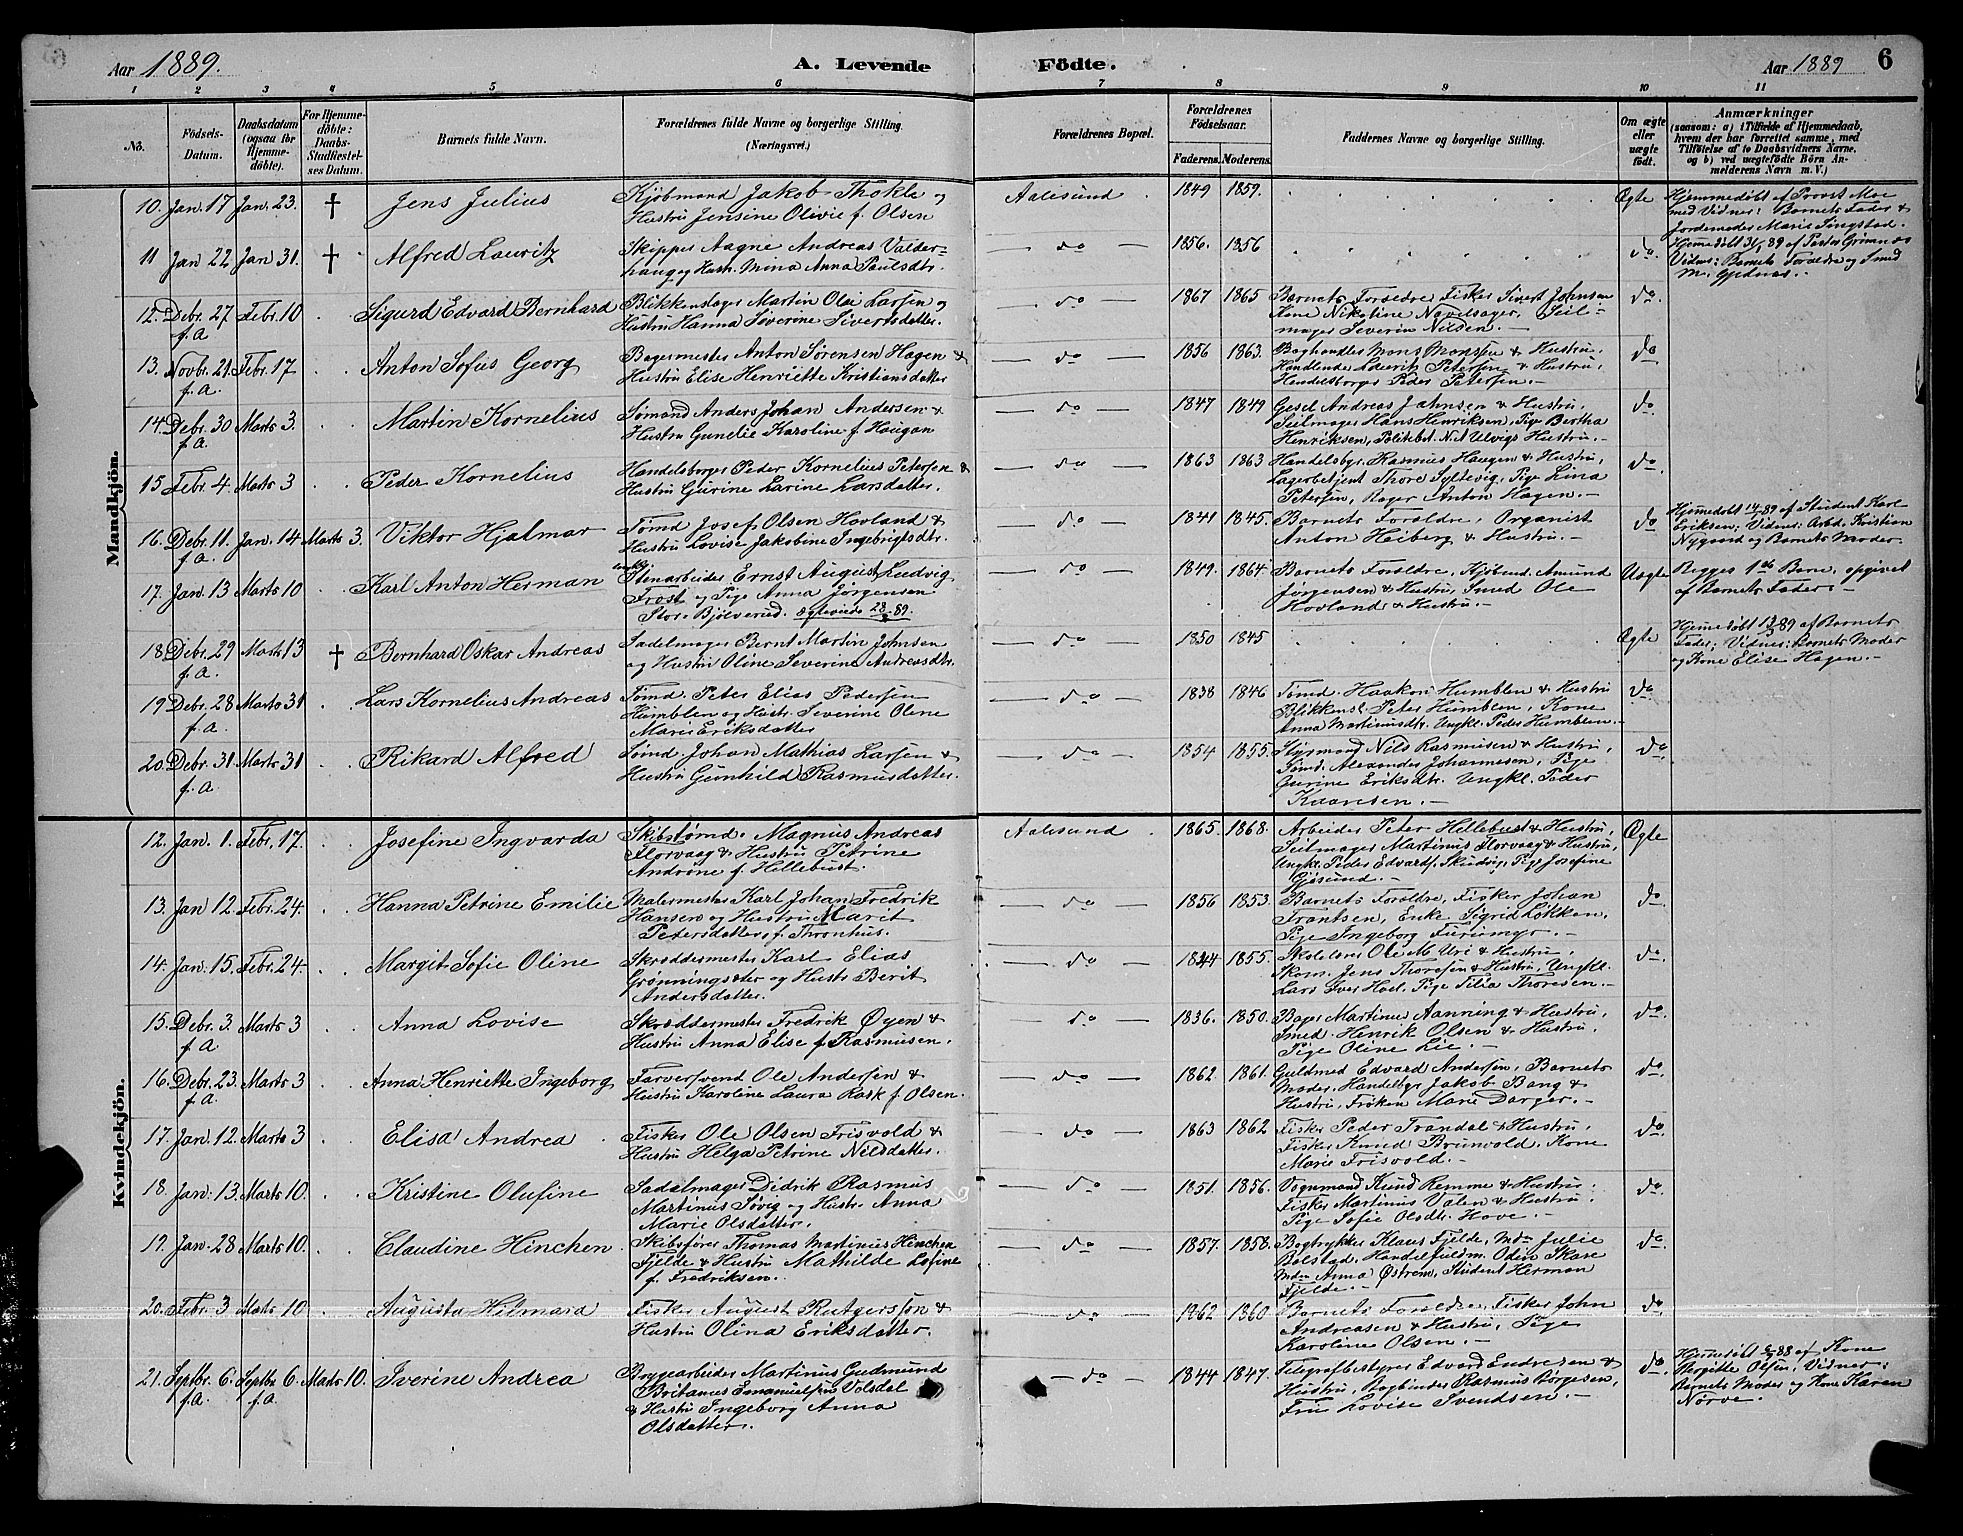 Aar 1889.
A. Levende Födte.
Aar 1889
6
1 2 3 4 5 6 7 8 9 10 11
No.
Födsels-Datum.
Daabsdatum (ogsaa for Hjemmedöbte).
For Hjemmedöbte: Daabs-Stadfæstelses Datum.
Barnets fulde Navn.
Forældrenes fulde Navne og borgerlige Stilling.
(Næringsvei.)
Forældrenes Bopæl.
Forældrenes Födselsaar.
Faderens. Moderens.
Faddernes Navne og borgerlige Stilling.
Om ægte eller uægte födt.
Anmærkninger
(saasom: a) i Tilfælde af Hjemmedaab, hvem der har forrettet samme, med Tilföielse af to Daabsvidners Navne, og b) ved uægtefödte Börn Anmelderens Navn m. V.)
Mandkjön.
10. Jan. 17 Jan. 23. † Jens Julius
Kjöbmand Jakob Thokle og
Hustru Jensine Olivie f. Olsen
Aalesund 1849 1859. Ægte
Hjemmedöbt af Provst Moe
med Vidner: Barnets Fader &
Jordemoder Marie Singstad.
11 Jan 22 Jan 31. † Alfred Lauritz
Skipper Aagne Andreas Valder-
haug og Hustr. Mina Anna Paulsdtr.
do 1856. 1856 do.
Hjemedöbt 31/1 89 af Pastor Grimnæs
Vidner: Barnets Forældre og Smed
M. Gjednæs.-
12. Debr. 27 f.a. Febr. 10 Sigurd Edvard Bernhard
Blikkenslager Martin Olai Larsen og
Hustru Hanna Severine Sivertsdatter.
do 1867 1865
Barnets Forældre, Fisker Sivert Johnsen
Kone Nikoline Navelsager, Seil-
mager Severin Nilsen.-
do.
13. Novbr. 21. f.a. Febr. 17 Anton Sofus Georg
Bagermester Anton Sörensen Hagen &
Hustru Elise Henriette Kristiansdatter
do 1856 1863.
Boghandler Mons Monssen & Hustru,
Handlende Lauritz Petersen & Hustru,
Handelsborger Peder Petersen.-
do
14 Debr. 30 f.a. Marts 3. Martin Kornelius
Sömand Anders Johan Andersen &
Hustru Gundie Karoline f. Haugan
do 1847 1849
Gesel Andreas Jahnsen & Hustru,
Seilmager Hans Henriksen, Pige Bertha
Henriksen, Politibet. Nil Ulvigs Hustru.-
do
15 Febr. 4. Marts 3 Peder Kornelius
Handelsborger Peder Kornelius Petersen &
Hustru Gurine Larine Larsdatter.
do 1863 1863
Handelsbgr. Rasmus Haugen & Hustru,
Lagerbetjent Thore Syltevig, Pige Lina
Petersen, Bager Anton Hagen.-
do.
16. Debr. 11. f.a. Jan. 14 Marts 3. Viktor Hjalmar
Tömd Josef Olsen Hovland &
Hustru Lovise Jakobine Ingebrigtsdtr.
do 1841 1845.
Barnets Foraldre, Organist
Anton Heiberg & Hustru.-
do
Hjemedöbt 14/1 89 af Student Karl
Eriksen; Vidner: Arbd. Kristian
Nygaard og Barnets Moder.
17. Jan. 13 Marts 10 Karl Anton Herman
Stenarbeider Ernst August Ludvig
Frost og Pige Anna Jörgensen
Store Bjölverud.
do 1849. 1864.
Barnets Foraldre, Kjöbmd. Amund
Jörgensen & Hustru, Smed Ole
Hovland & Hustru.-
Uægte
Begges 1ste Barn, opgivet
af Barnets Fader.-
18. Debr. 29 f.a. Marts 13 † Bernhard Oskar Andreas
Sadelmager Bernt Martin Johnsen
og Hustru Oline Severine Andreasdtr.
do 1850 1845 Ægte
Hjemedöbt 13/3 89 af Barnets
Fader; Vidner: Barnets Moder
og Kone Elise Hagen.-
19. Debr. 28 f.a. Marts 31 Lars Kornelius Andreas
Tömd. Peter Elias Pedersen
Humblen og Hustr. Severine Olene
Marie Eriksdatter
do 1838 1846
Tömd. Haakon Humblen & Hustru
Blikkensl. Peter Humblen, Kone
Anna Martinusdtr. Ungkl. Peder Humblen.-
do
20. Debr. 31. f.a. Marts 31 Rikard Alfred
Sömd Johan Mathias Larsen &
Hustru Gunhild Rasmusdatter.
do 1854 1855.
Styrmand Nils Rasmussen & Hustru,
Tömd. Alexander Johannesen, Pige
Gurine Eriksdtr. Ungkl. Peder
Knarisen.-
do
Kvindekjön.
12. Jan. 1. Febr. 17. Josefine Ingvarda
Skibstömd. Magnus Andreas
Florvaag & Hustru Petrine
Androne f. Hellebust.
Aalesund 1865. 1868.
Arbeider Peter Hellebust & Hustru,
Seilmager Martinus Florvaag & Hustru,
Ungkl. Peder Edvardsf. Pige Josefine
Gjösund.-
Ægte
13. Jan 12. Febr. 24. Hanna Petrine Emilie
Malermester Karl Johan Fredrik
Hansen og Hustru Marit
Petersdatter f. Thronhus.
do 1856 1853.
Barnets Foraldre, Fisker Johan
Frantsen, Enke Sigrid Lökken,
Pige Ingeborg Furumyr.-
do.
14. Jan. 15. Febr. 24. Margit Sofie Oline
Skræddermester Karl Elias
Grönningsæter og Hustr. Berit
Andersdatter.
do 1844 1855.
Skolelær. Ole M. Uri & Hustru,
Skom. Jens Thoresen & Hustru, Ungkl.
Lars Iver Hoel. Pige Tilia Thoresen.-
do.
15. Debr. 3. f.a. Marts 3 Anna Lovise
Skræddermester Fredrik Öyen &
Hustru Anna Elise f. Rasmusen.
do 1836. 1850.
Bager Martinus Aanning & Hustru,
Smed Henrik Olsen & Hustru,
Pige Oline Lie.-
do.
16. Debr. 23. f.a. Marts 3 Anna Henriette Ingeborg
Farversvend Ole Andersen &
Hustru Karoline Laura Rask f. Olsen.
do 1862. 1861.
Guldsmed Edvard Andersen, Barnets
Moder, Handelbgr Jakob Bang &
Hustru, Fröken Marie Dorger.-
do.
17. Jan 12. Marts 3 Elisa Andrea
Fisker Ole Olsen Frisvold &
Hustru Helga Petrine Nilsdatter.
do 1863 1862
Fisker Peder Frandal & Hustru,
Fisker Knud Brunvold, Kone
Marie Frisvold.-
do
18. Jan. 13. Marts 10. Kristine Olufine
Sadelmager Didrik Rasmus
Martinus Sövig og Hustr. Anna
Marie Olsdatter.
do 1851. 1856.
Vognmand Knud Remme & Hustru,
Fisker Martinus Valen & Hustru,
Pige Sofie Olsdtr. Hove.-
do
19. Jan. 28 Marts 10. Claudine Hinchen
Skibsförer Thomas Martinus Hinchen
Fjelde & Hustru Mathilde Lofine
f. Fredriksen.
do 1857. 1858.
Bogtrykker Klaus Fjelde, Julie
Bolstad, Handelsfuldm. Odin Skare
Anna Östrem, Student Herman
Fjelde.-
do
20. Febr. 3 Marts 10 Augusta Hilmara
Fisker August Rutgersson &
Hustru Olina Eriksdatter.
do 1862 1860
Barnets Foraldre, Fisker John
Andreasen & Hustru, Pige
Karoline Olsen.-
do
21. Septbr. 6. f.a. Septbr 6. f.a. Marts 10. Iverine Andrea
Byggearbeider Martinus Gudmund
Britanus Emanuelsen Volsdal
& Hustru Ingeborg Anna
Olsdatter.
do 1844 1847.
Telegrafbestyrer Edvard Endresen &
Hustru, Bogbinder Rasmus Börgesen,
Fru Lovise Svendsen.-
do
Hjemedöbt 6/9 88 af Kone
Birgitte Olsen, Vidner:
Barnets Moder og Kone Karen
Nörve.